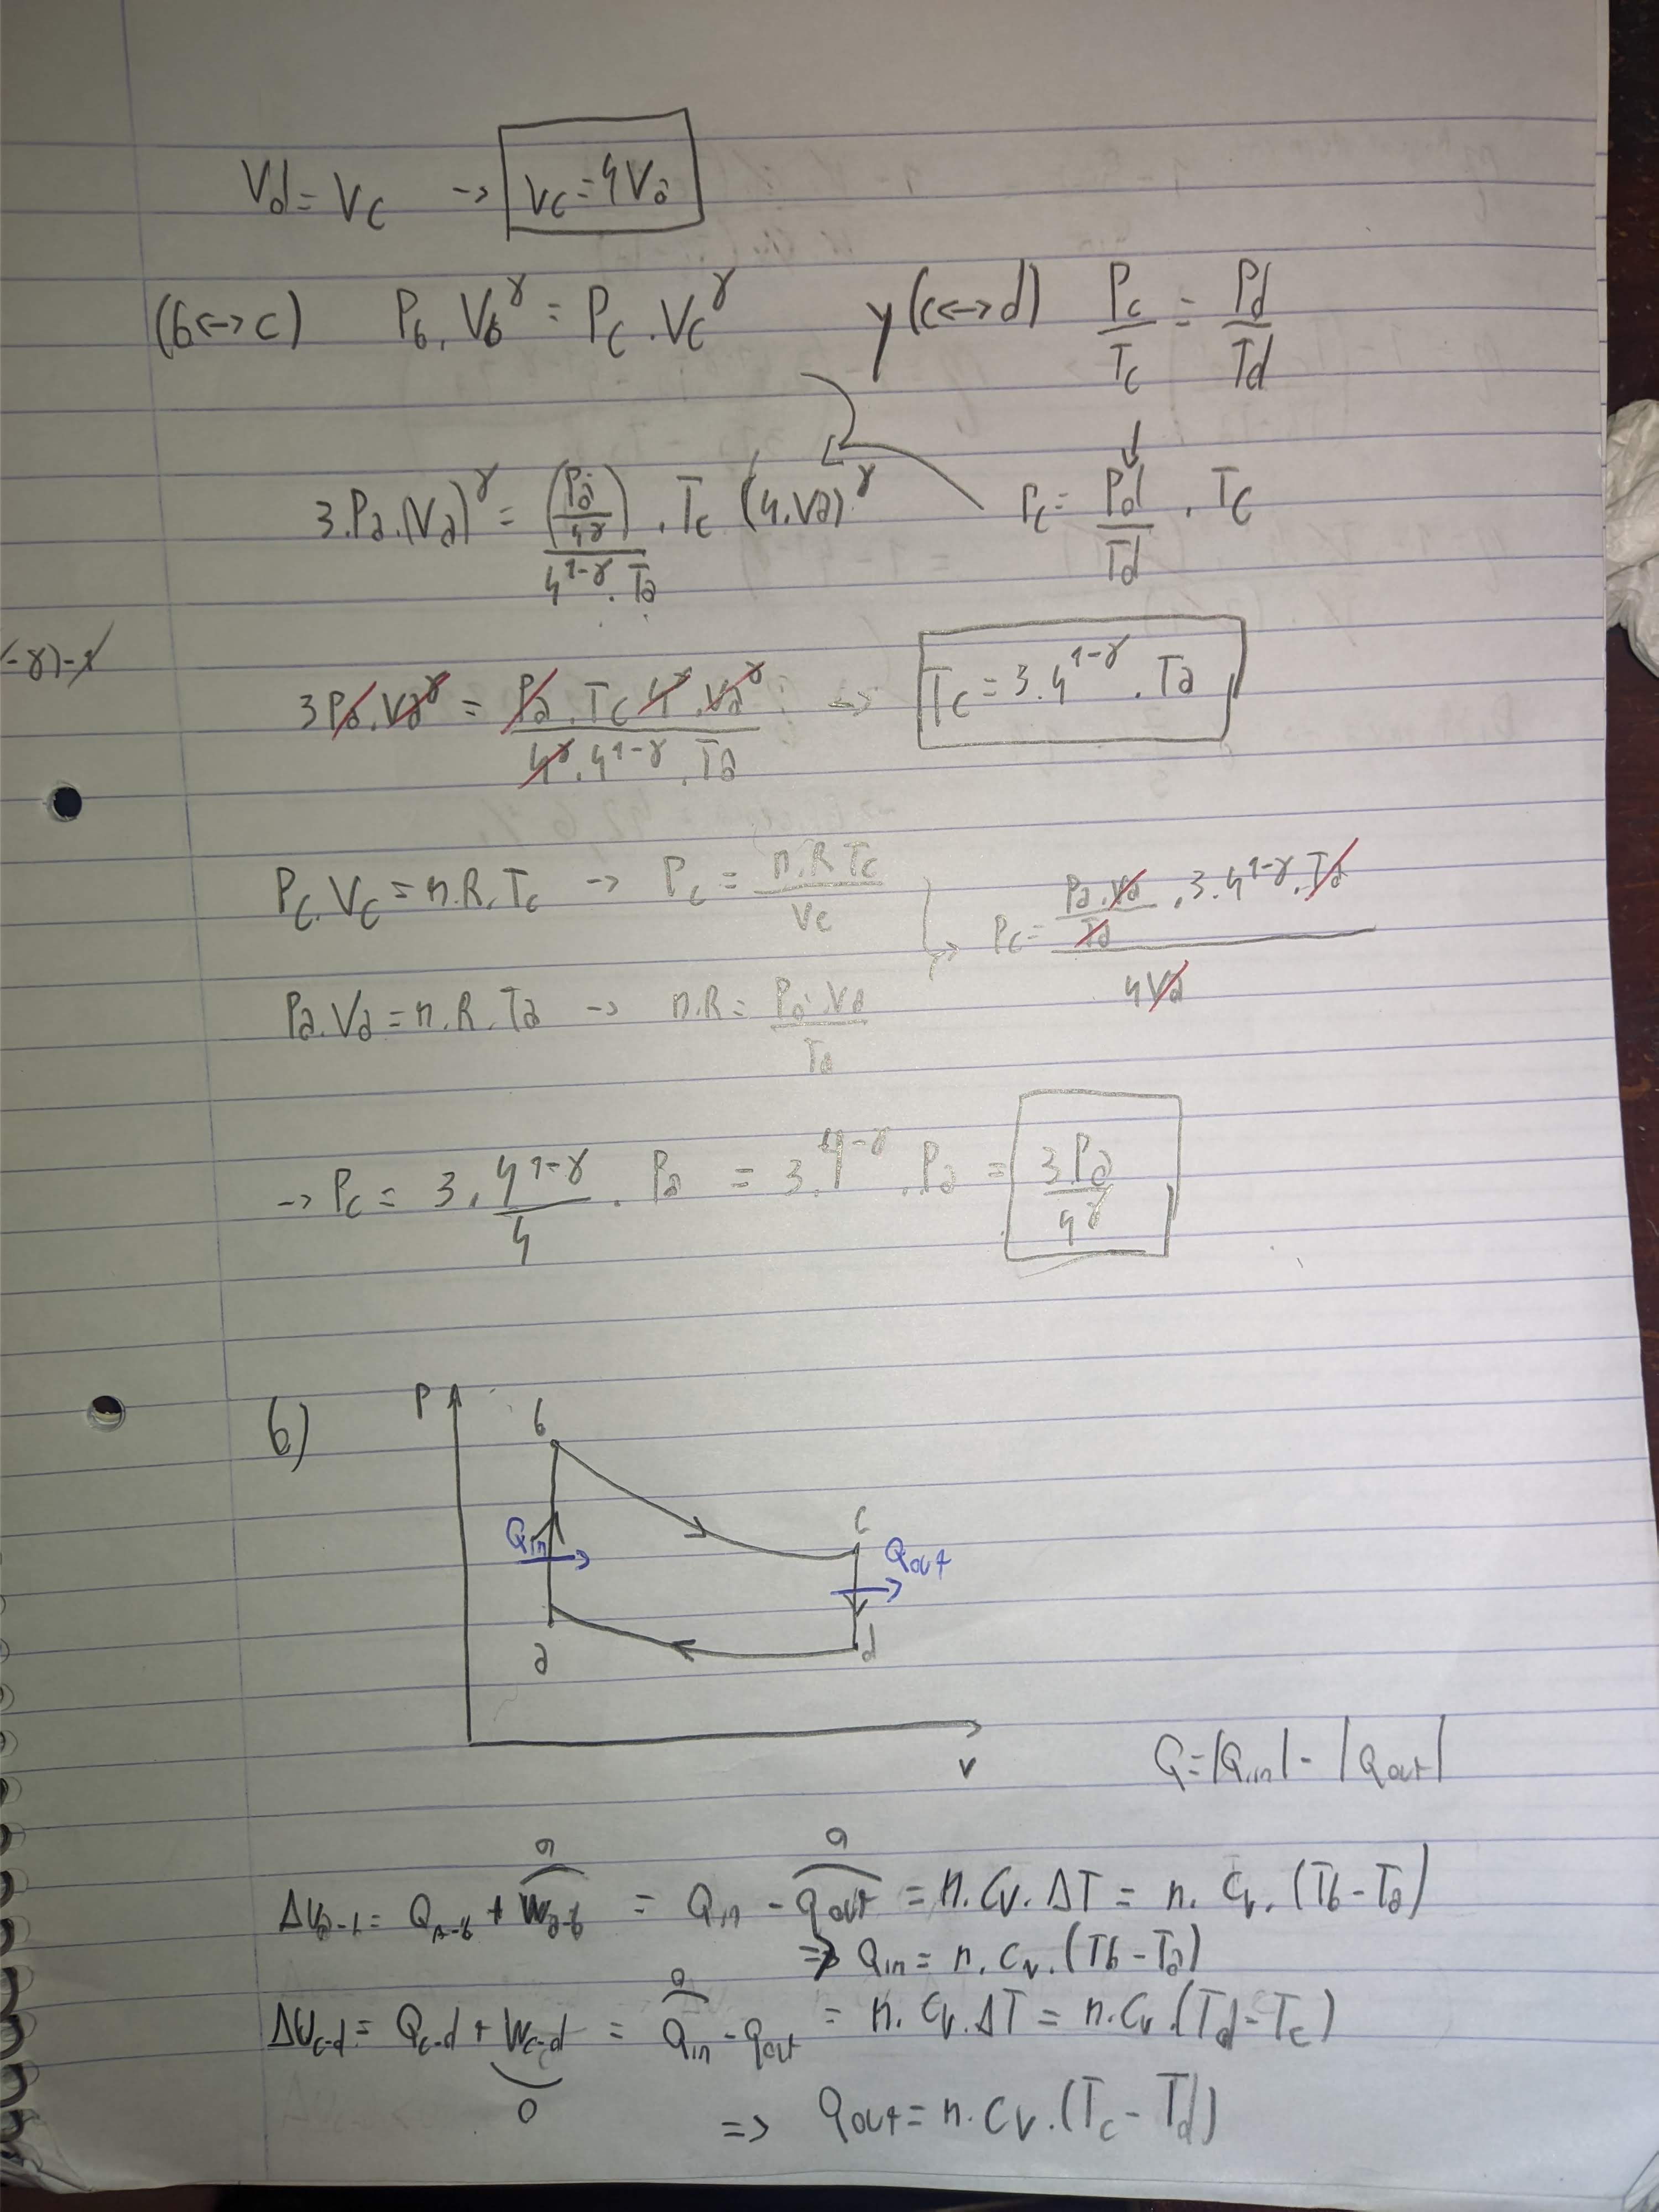 Vd = Vc → Vc = 4Va
(b↔c) Pb.Vb^γ = Pc.Vc^γ y (c↔d) Pc/Tc = Pd/Td
3.Pa.(Va)^γ = ((Pa/4^γ)/(4^(1-γ).Ta)).Tc (4.Va)^γ Pc = Pd/Td . Tc
-γ)-1
3Pa.Va^γ = (Pa.Tc 4^γ.Va^γ)/(4^γ.4^(1-γ).Ta) → Tc = 3.4^(1-γ).Ta
Pc.Vc = n.R.Tc → Pc = n.R Tc/Vc → Pc = ((Pa.Va/Ta).3.4^(1-γ).Ta)/(4Va)
Pa.Va = n.R.Ta → n.R = Pa.Va/Ta
→ Pc = 3.(4^(1-γ)/4).Pa = 3.4^(-γ).Pa = 3Pa/4^γ
b)
P
b
c
Qin
Qout
a
d
V
Q = |Qin| - |Qout|
ΔUa-b = Qa-b + Wa-b (0) = Qin - Qout (0) = n.Cv.ΔT = n.Cv.(Tb-Ta)
⇒ Qin = n.Cv.(Tb-Ta)
ΔUc-d = Qc-d + Wc-d (0) = Qin (0) - Qout = n.Cv.ΔT = n.Cv.(Td-Tc)
⇒ Qout = n.Cv.(Tc-Td)